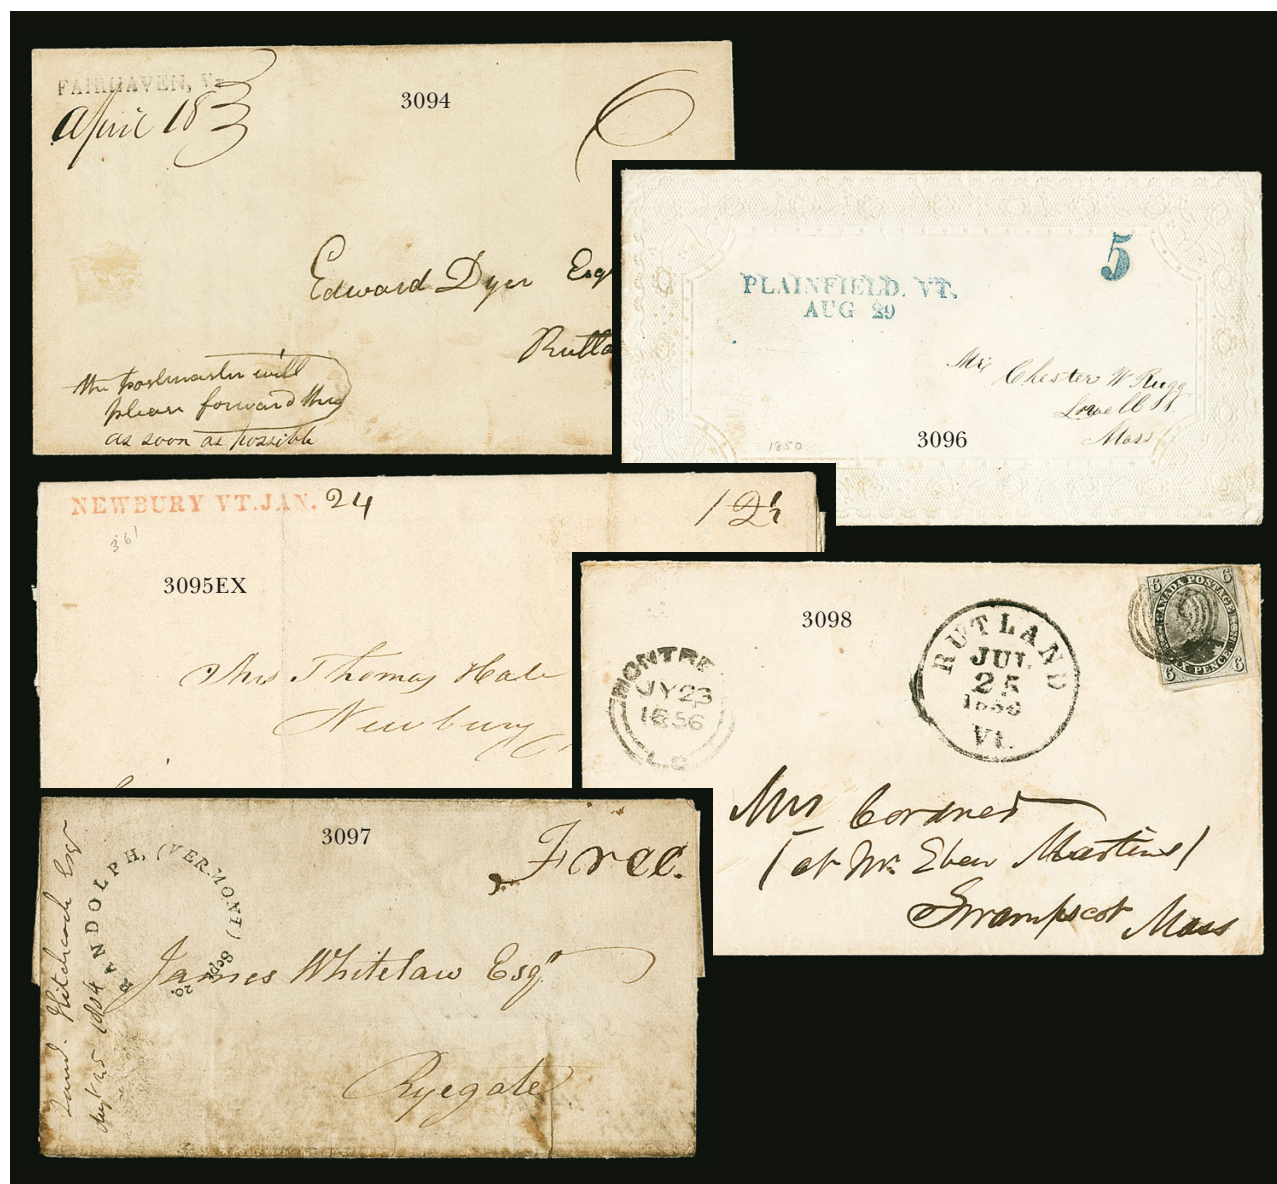 FAIRHAVEN, Vt
April 18
3094
6
Edward Dyer Esqr
Rutla
the postmaster will
please forward this
as soon as possible
5
PLAINFIELD. VT.
AUG 29
Mr. Chester W. Rugg
Lowell St.
Mass
1850
3096
NEWBURY VT. JAN. 24
12½
361
3095EX
Mrs Thomas Hale
Newbury
3098
MONTRE
JY 23
1856
L.C
RUTLAND
JUL
25
1856
Vt.
6 CANADA POSTAGE 6
6 SIX PENCE 6
Mrs Cordner
(at Mr. Eben Martins)
Swampscot Mass
3097
Free.
RANDOLPH, (VERMONT) Sept. 20.
Saml. Hitchcock Esqr
1804
James Whitelaw Esqr
Ryegate